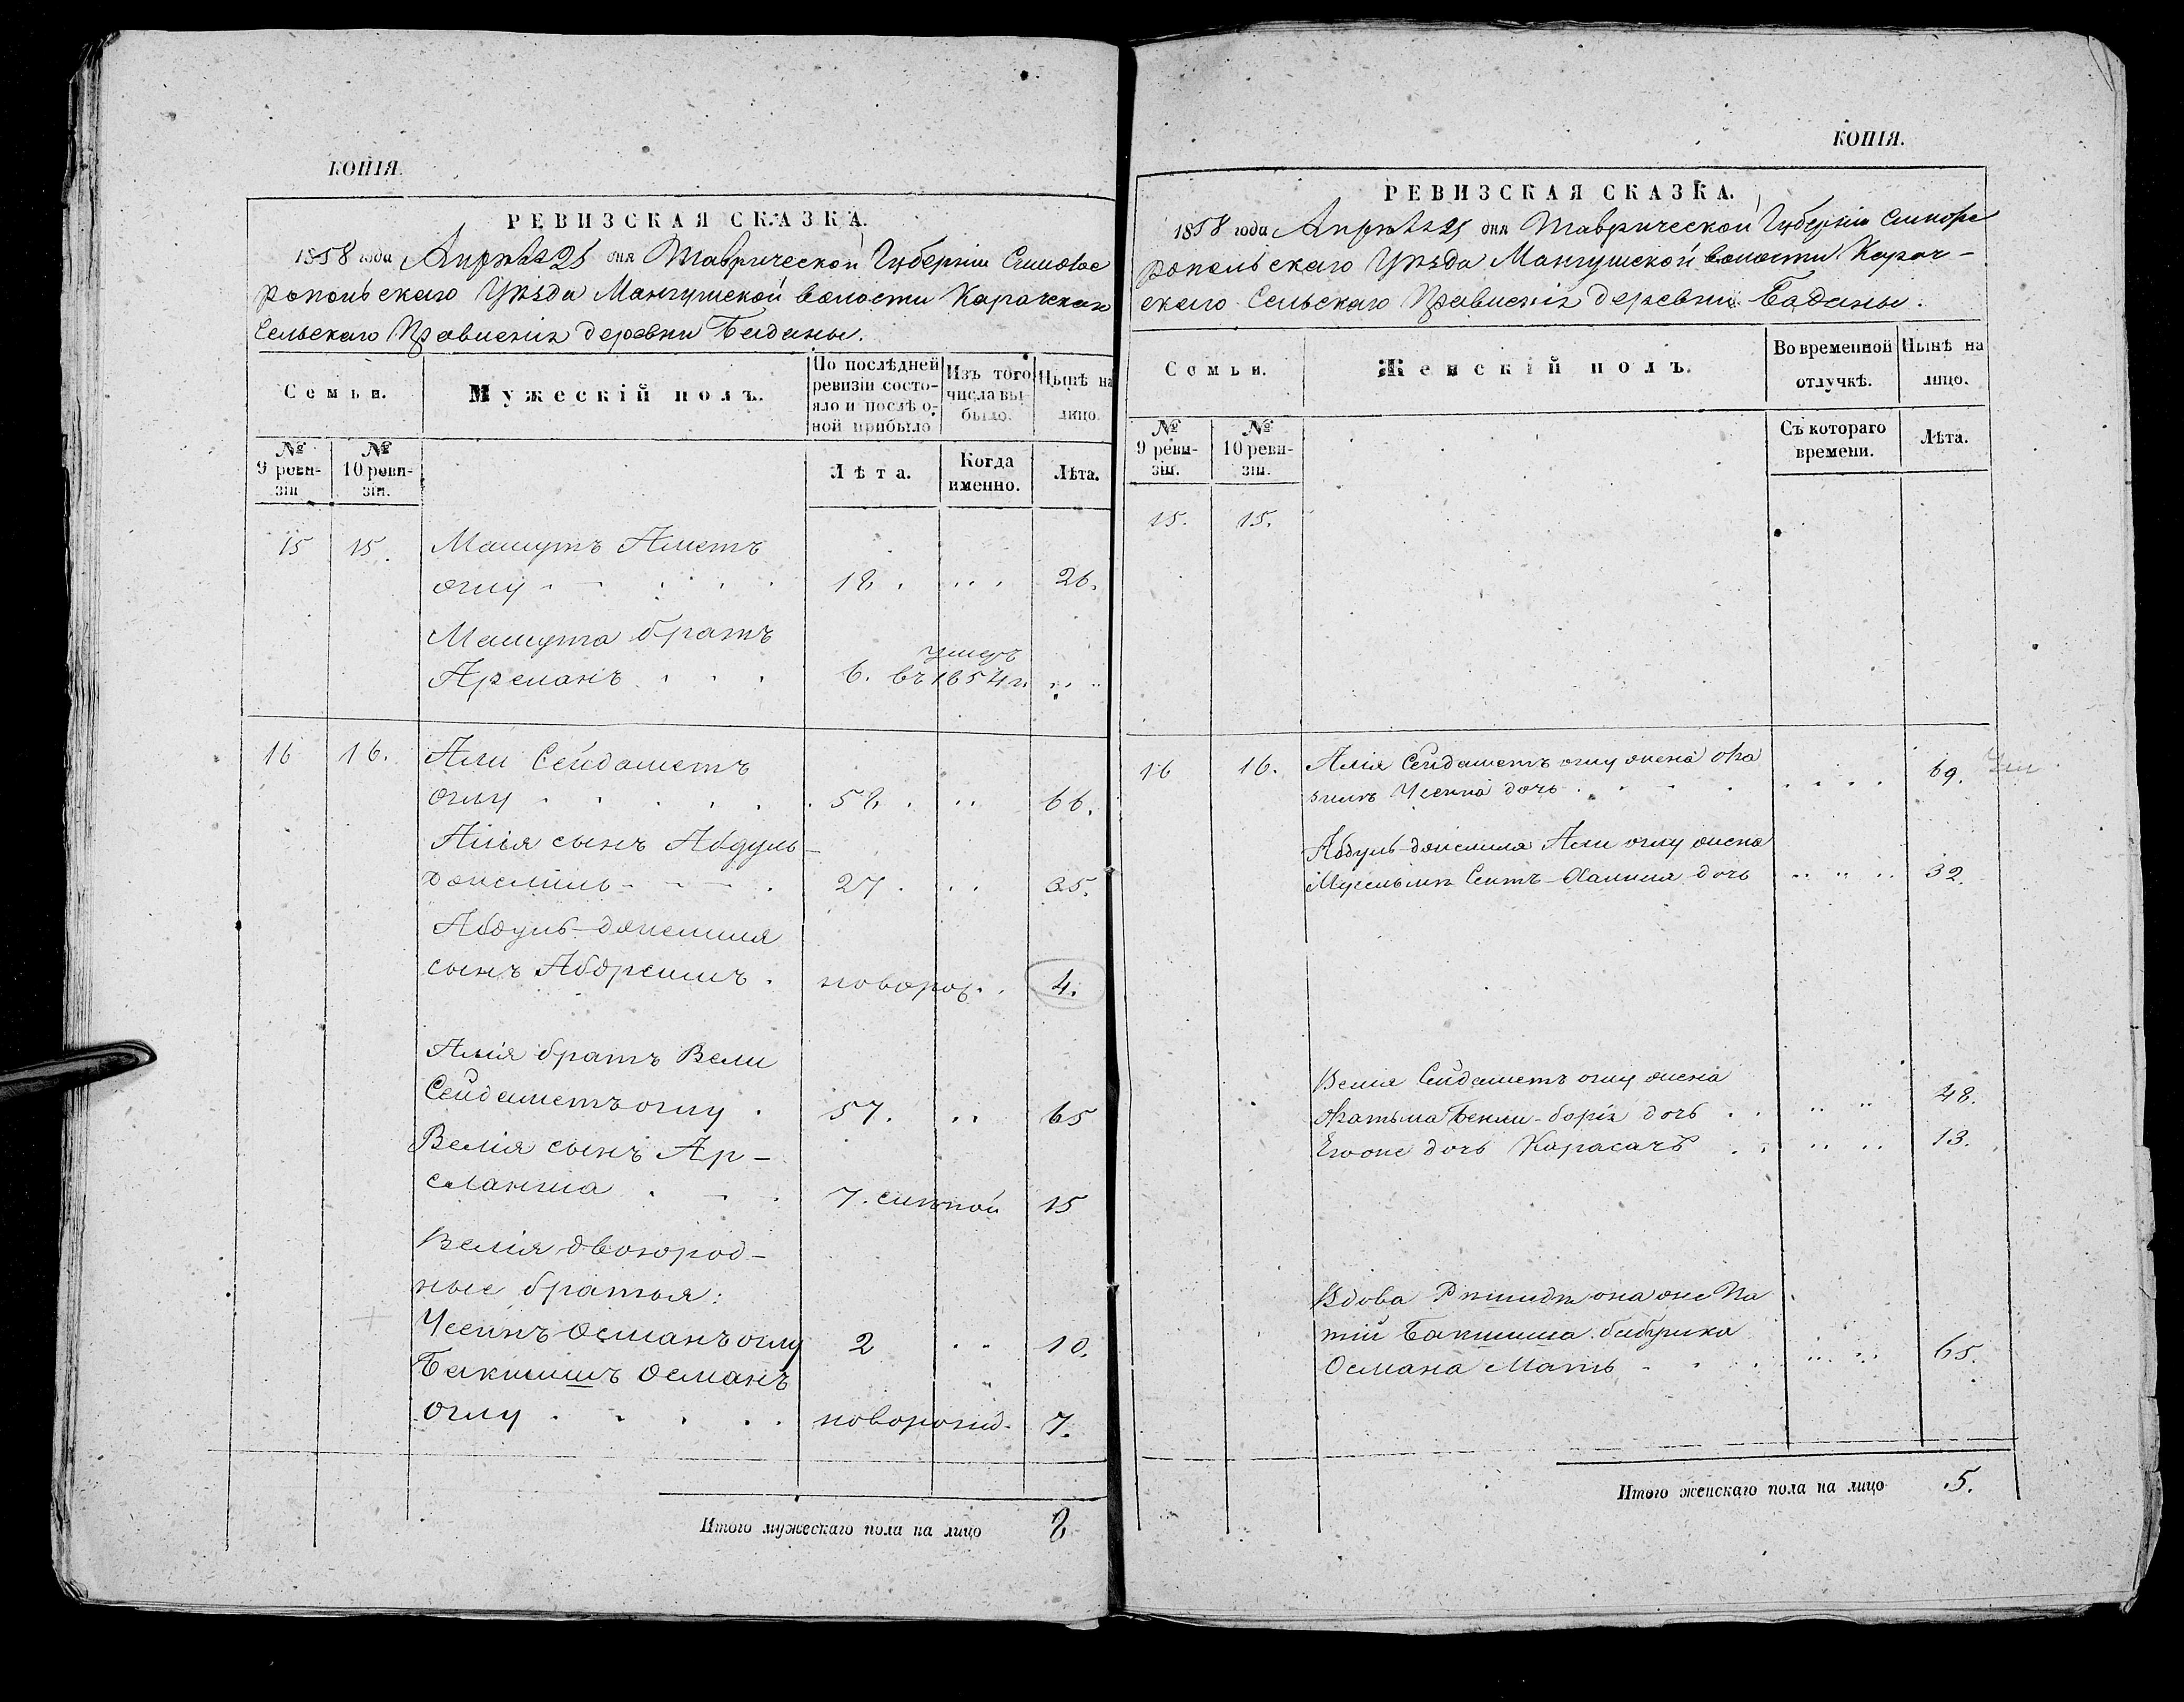 КОПІЯ.
РЕВИЗСКАЯ СКАЗКА.
1858 года Апрѣля 25 дня Таврической Губерніи Симфе
ропольскаго Уѣзда Мангушской волости Карачскаго
Сельскаго Правленія деревни Баданы.
Семьи.
Мужескій полъ.
По послѣдней ревизіи состояло и послѣ оной прибыло
Изъ того числа выбыло.
Нынѣ на лицо.
№ 9 ревизіи
№ 10 ревизіи.
Лѣта.
Когда именно.
Лѣта.
15 15. Мамутъ Аметъ
оглу 18. 26.
Мамута братъ
умеръ
Арсланъ 6. въ 1854 г.
16 16. Али Сейдаметъ
оглу 58. 66.
Алія сынъ Абдуль-
джемиль 27. 35.
Абдуль-джемиля
сынъ Абдреимъ. новорож. 4.
Алія братъ Вели
Сейдаметъ оглу. 57. 65
Велія сынъ Ар-
сланша 7. слѣпой 15
Велія двоюрод-
ные братья:
Усеинъ Османъ оглу 2 10.
Бекишишъ Османъ
оглу новорожд. 7.
Итого мужескаго пола на лицо 8
КОПІЯ.
РЕВИЗСКАЯ СКАЗКА.
1858 года Апрѣля 25 дня Таврической Губерніи Симфе
ропольскаго Уѣзда Мангушской волости Карач-
скаго Сельскаго Правленія деревни Баданы.
Семьи.
Женскій полъ.
Во временной отлучкѣ.
Нынѣ на лицо.
№ 9 ревизіи.
№ 10 ревизіи.
Съ котораго времени.
Лѣта.
15. 15.
16 16. Алія Сейдаметъ оглу жена Фа
зилѣ Усеина дочь 69.
Абдуль-джемиля Али оглу жена
Сеитъ-Халиля дочь 32.
Велія Сейдаметъ оглу жена
Фатьма дочь 48.
Егоже дочь Карасачъ 13.
Вдова она же
Османа Мать 65.
Итого женскаго пола на лицо 5.